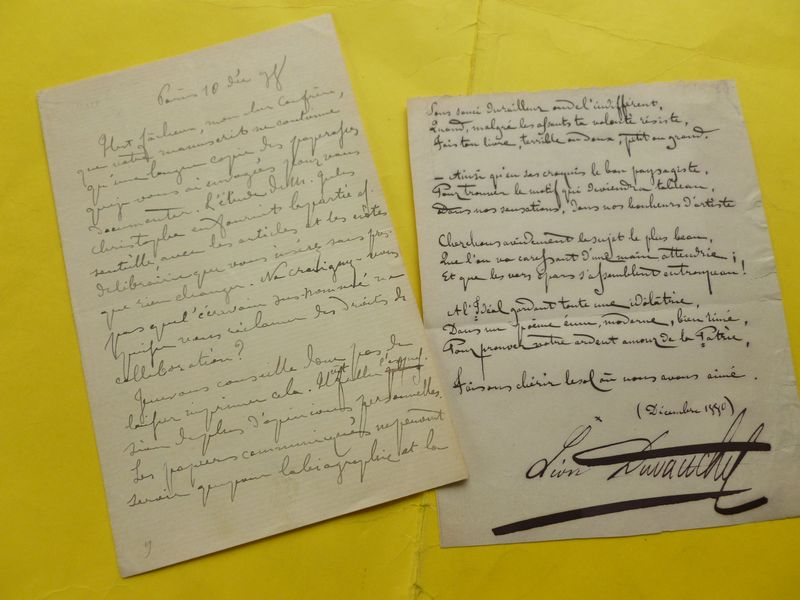 Paris 10 déc 98
fâcheux, mon cher confrère,
que votre manuscrit ne contienne
qu'une longue copie des paperasses
que je vous ai envoyées pour vous
documenter. L'étude de M. Jules
Christophe en fournit la partie es-
sentielle avec les articles et les notes
de librairie que vous insérez sans pres-
que rien changer. Ne craignez-vous
pas que l'écrivain sus-nommé ne
puisse vous réclamer des droits de
collaboration?
Je vous conseille donc pas de
laisser imprimer cela.
sion de plus d'opinions personnelles.
Les papiers communiqués ne peuvent
servir que pour la biographie et la
9
Sans souci du railleur ou de l'indifférent,
Quand, malgré les assauts ta volonté résiste,
Fais ton livre, terrible ou doux, petit ou grand.
— Ainsi qu'en ses croquis le bon paysagiste,
Pour trouver le motif qui deviendra tableau,
Dans nos sensations, dans nos bonheurs d'artiste
Cherchons avidement le sujet le plus beau,
Que l'on va caressant d'une main attendrie;
Et que les vers épars s'assemblent en troupeau!
A l'Idéal gardant toute une idolâtrie,
Dans un poème ému, moderne, bien rimé,
Pour prouver votre ardent amour de la Patrie,
Faisons chérir le sol où nous avons aimé.
(Décembre 1880)
Léon Duvauchel